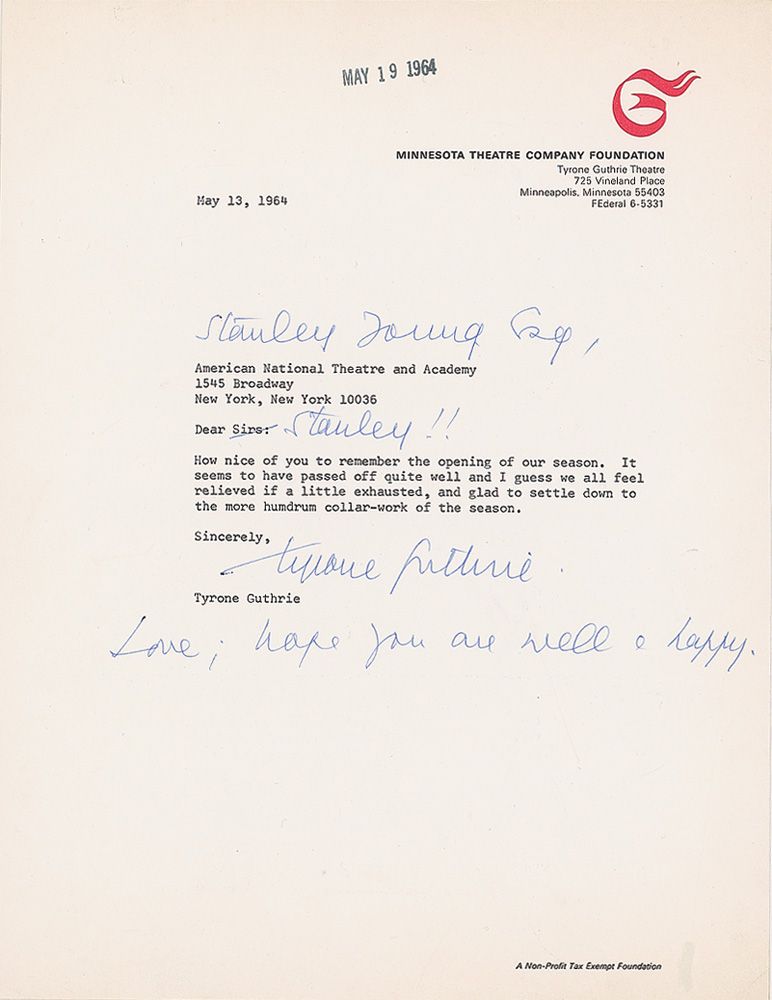 MAY 19 1964
MINNESOTA THEATRE COMPANY FOUNDATION
Tyrone Guthrie Theatre
725 Vineland Place
Minneapolis, Minnesota 55403
FEderal 6-5331
May 13, 1964
Stanley Young Esq,
American National Theatre and Academy
1545 Broadway
New York, New York 10036
Dear Sirs: Stanley!!
How nice of you to remember the opening of our season. It
seems to have passed off quite well and I guess we all feel
relieved if a little exhausted, and glad to settle down to
the more humdrum collar-work of the season.
Sincerely,
Tyrone Guthrie.
Tyrone Guthrie
Love; hope you are well & happy.
A Non-Profit Tax Exempt Foundation